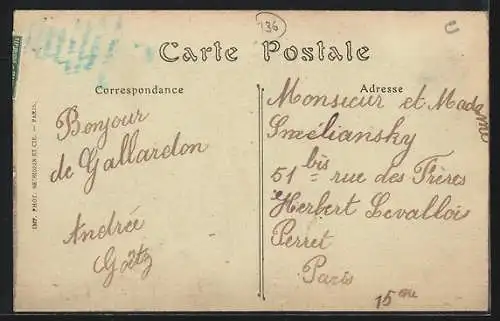 136
Carte Postale
Correspondance
Adresse
Bonjour
de Gallardon
Andrée
Goëtz
Monsieur et Madame
Sméliansky
51 bis rue des Frères
Herbert Levallois
Perret
Paris
15me
IMP. PHOT. NEURDEIN ET CIE. — PARIS.